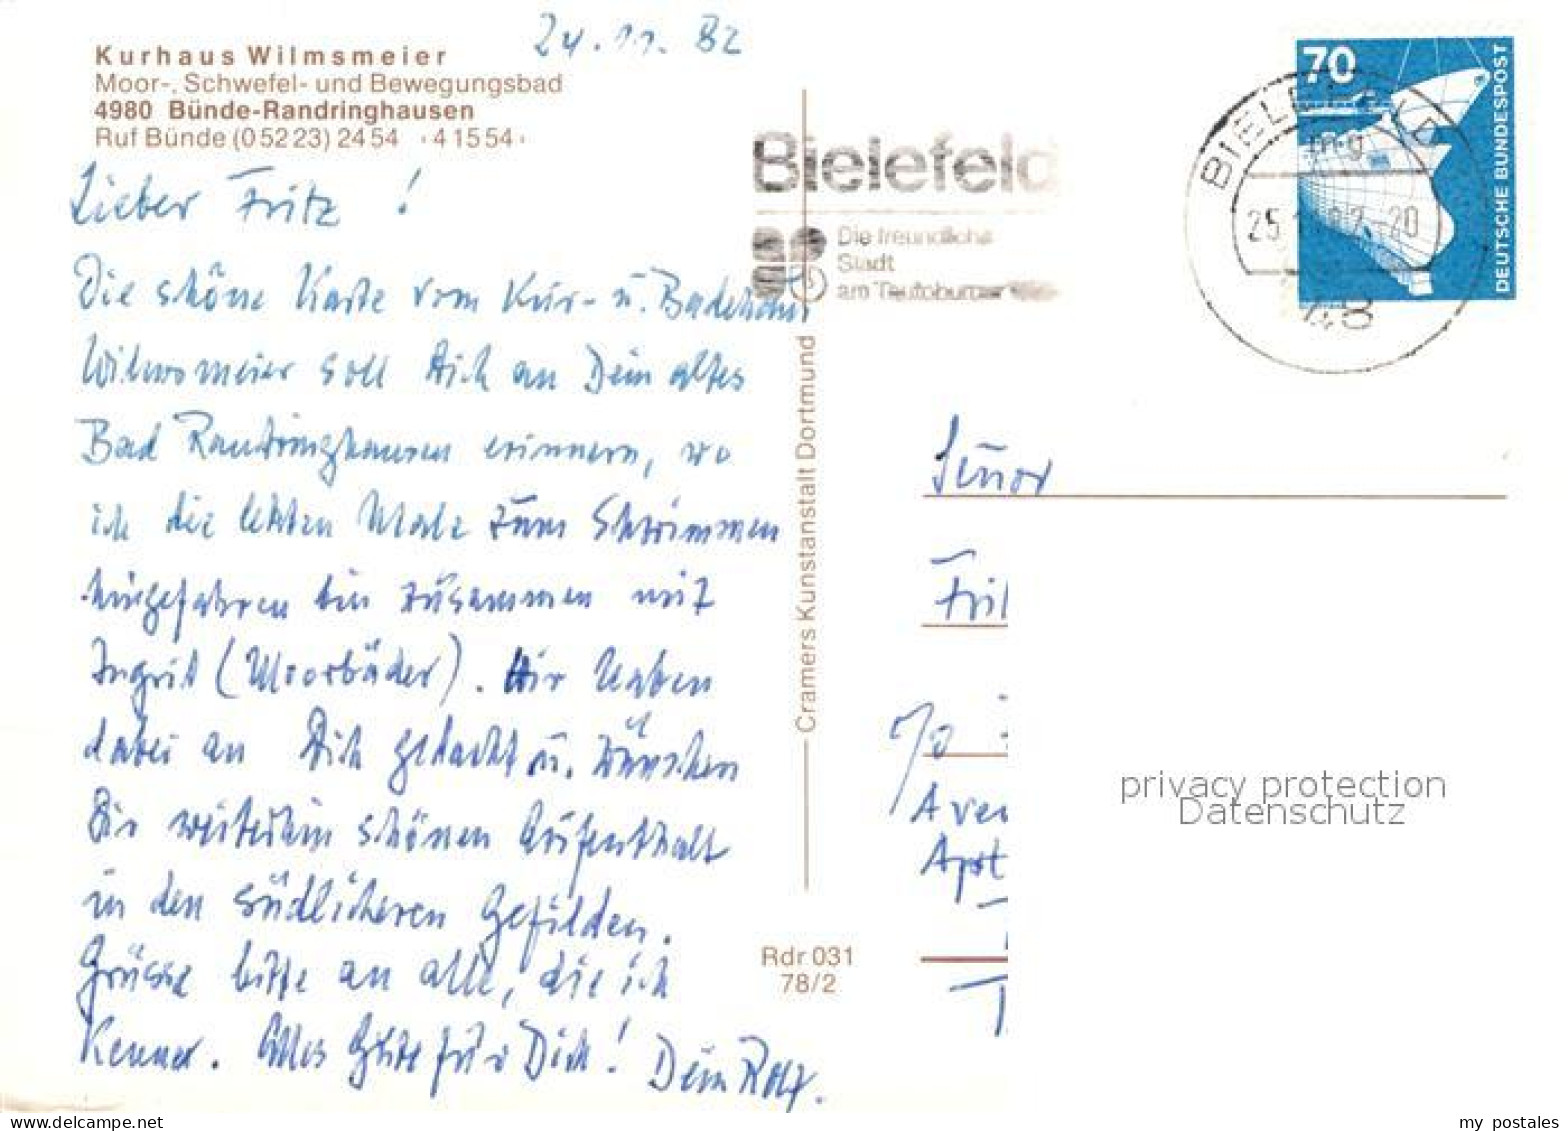 24.11.82
Kurhaus Wilmsmeier
Moor-, Schwefel- und Bewegungsbad
4980 Bünde-Randringhausen
Ruf Bünde (05223) 2454 · 41554 ·
Lieber Fritz !
Die schöne Karte vom Kur- u. Badehaus
Wilmsmeier soll Dich an Dein altes
Bad Randringhausen erinnern, wo
ich die letzten Male zum Schwimmen
hingefahren bin zusammen mit
Ingrid (Moorbäder). Wir haben
dabei an Dich gedacht u. wünschen
Dir weiterhin schönen Aufenthalt
in den südlicheren Gefilden.
Grüsse bitte an alle, die ich
kenne. Alles Gute für Dich! Dein Rolf.
Cramers Kunstanstalt Dortmund
Rdr 031
78/2
Bielefeld
Die freundliche
Stadt
am Teutoburger
70
DEUTSCHE BUNDESPOST
BIELEFELD
mg
25
-20
48
Señor
Frit
c/o
Aven
Apt
privacy protection
Datenschutz
delcampe.net
my_postales